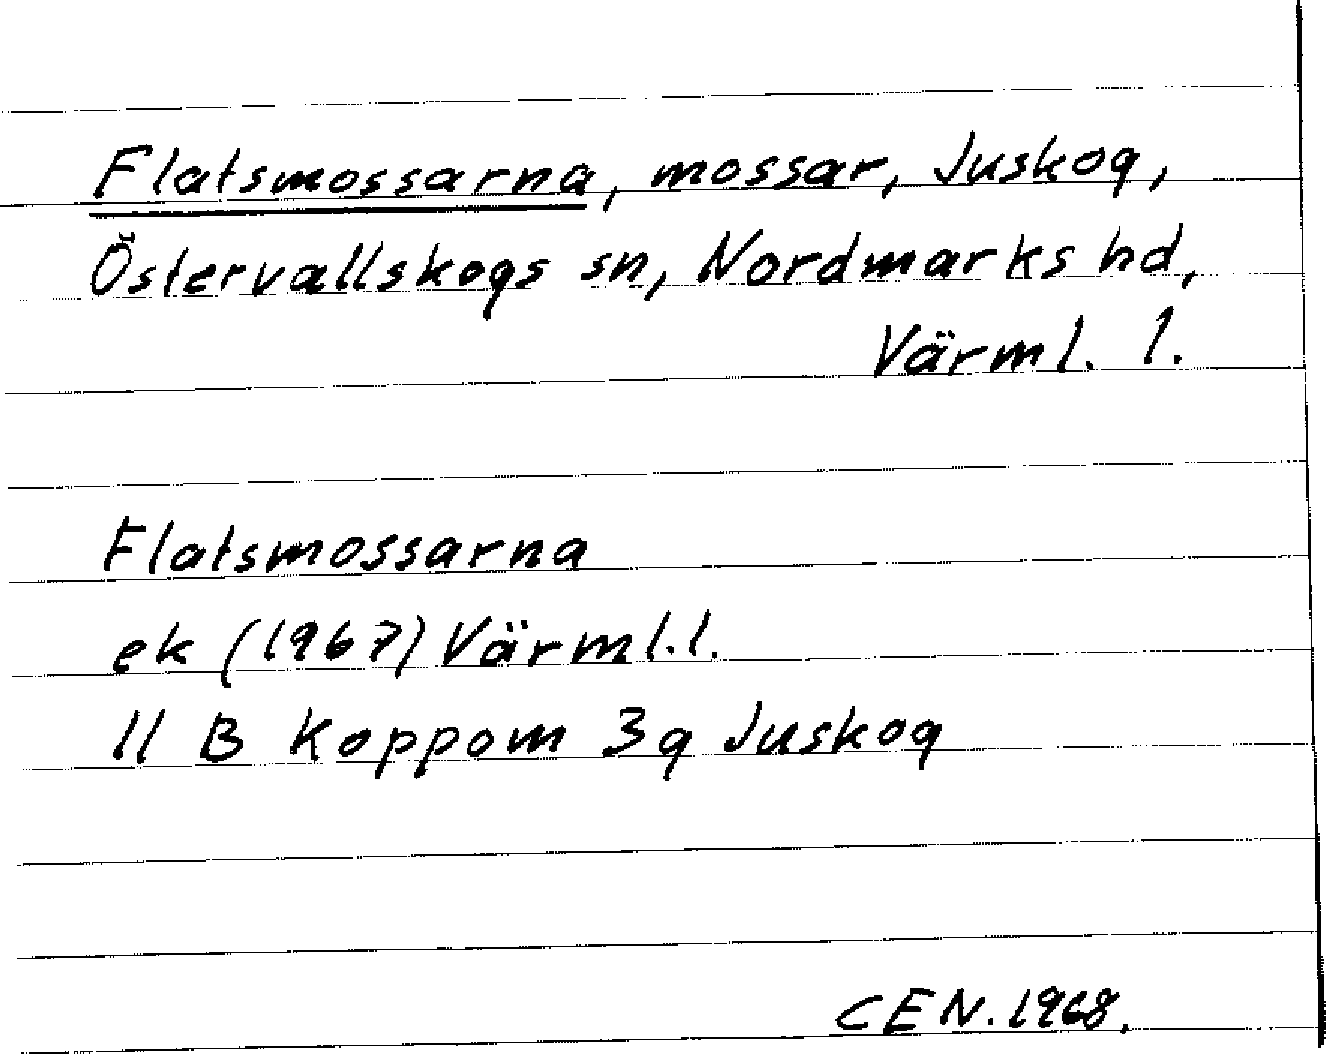 Flatsmossarna, mossar, Juskog,
Östervallskogs sn, Nordmarks hd,
Värml. l.
Flatsmossarna
ek (1967) Värml. l.
11 B Koppom 3g Juskog
CEN. 1968.